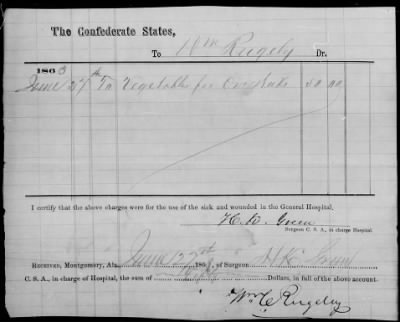 The Confederate States,
To Wm Rugely Dr.
1863
June 27th To Vegetables for One 50 00
I certify that the above charges were for the use of the sick and wounded in the General Hospital.
Green
Surgeon C. S. A., in charge Hospital.
Received, Montgomery, Ala. June 27th 186 of Surgeon Green
C. S. A., in charge of Hospital, the sum of Dollars, in full of the above account.
Wm C Rugeley